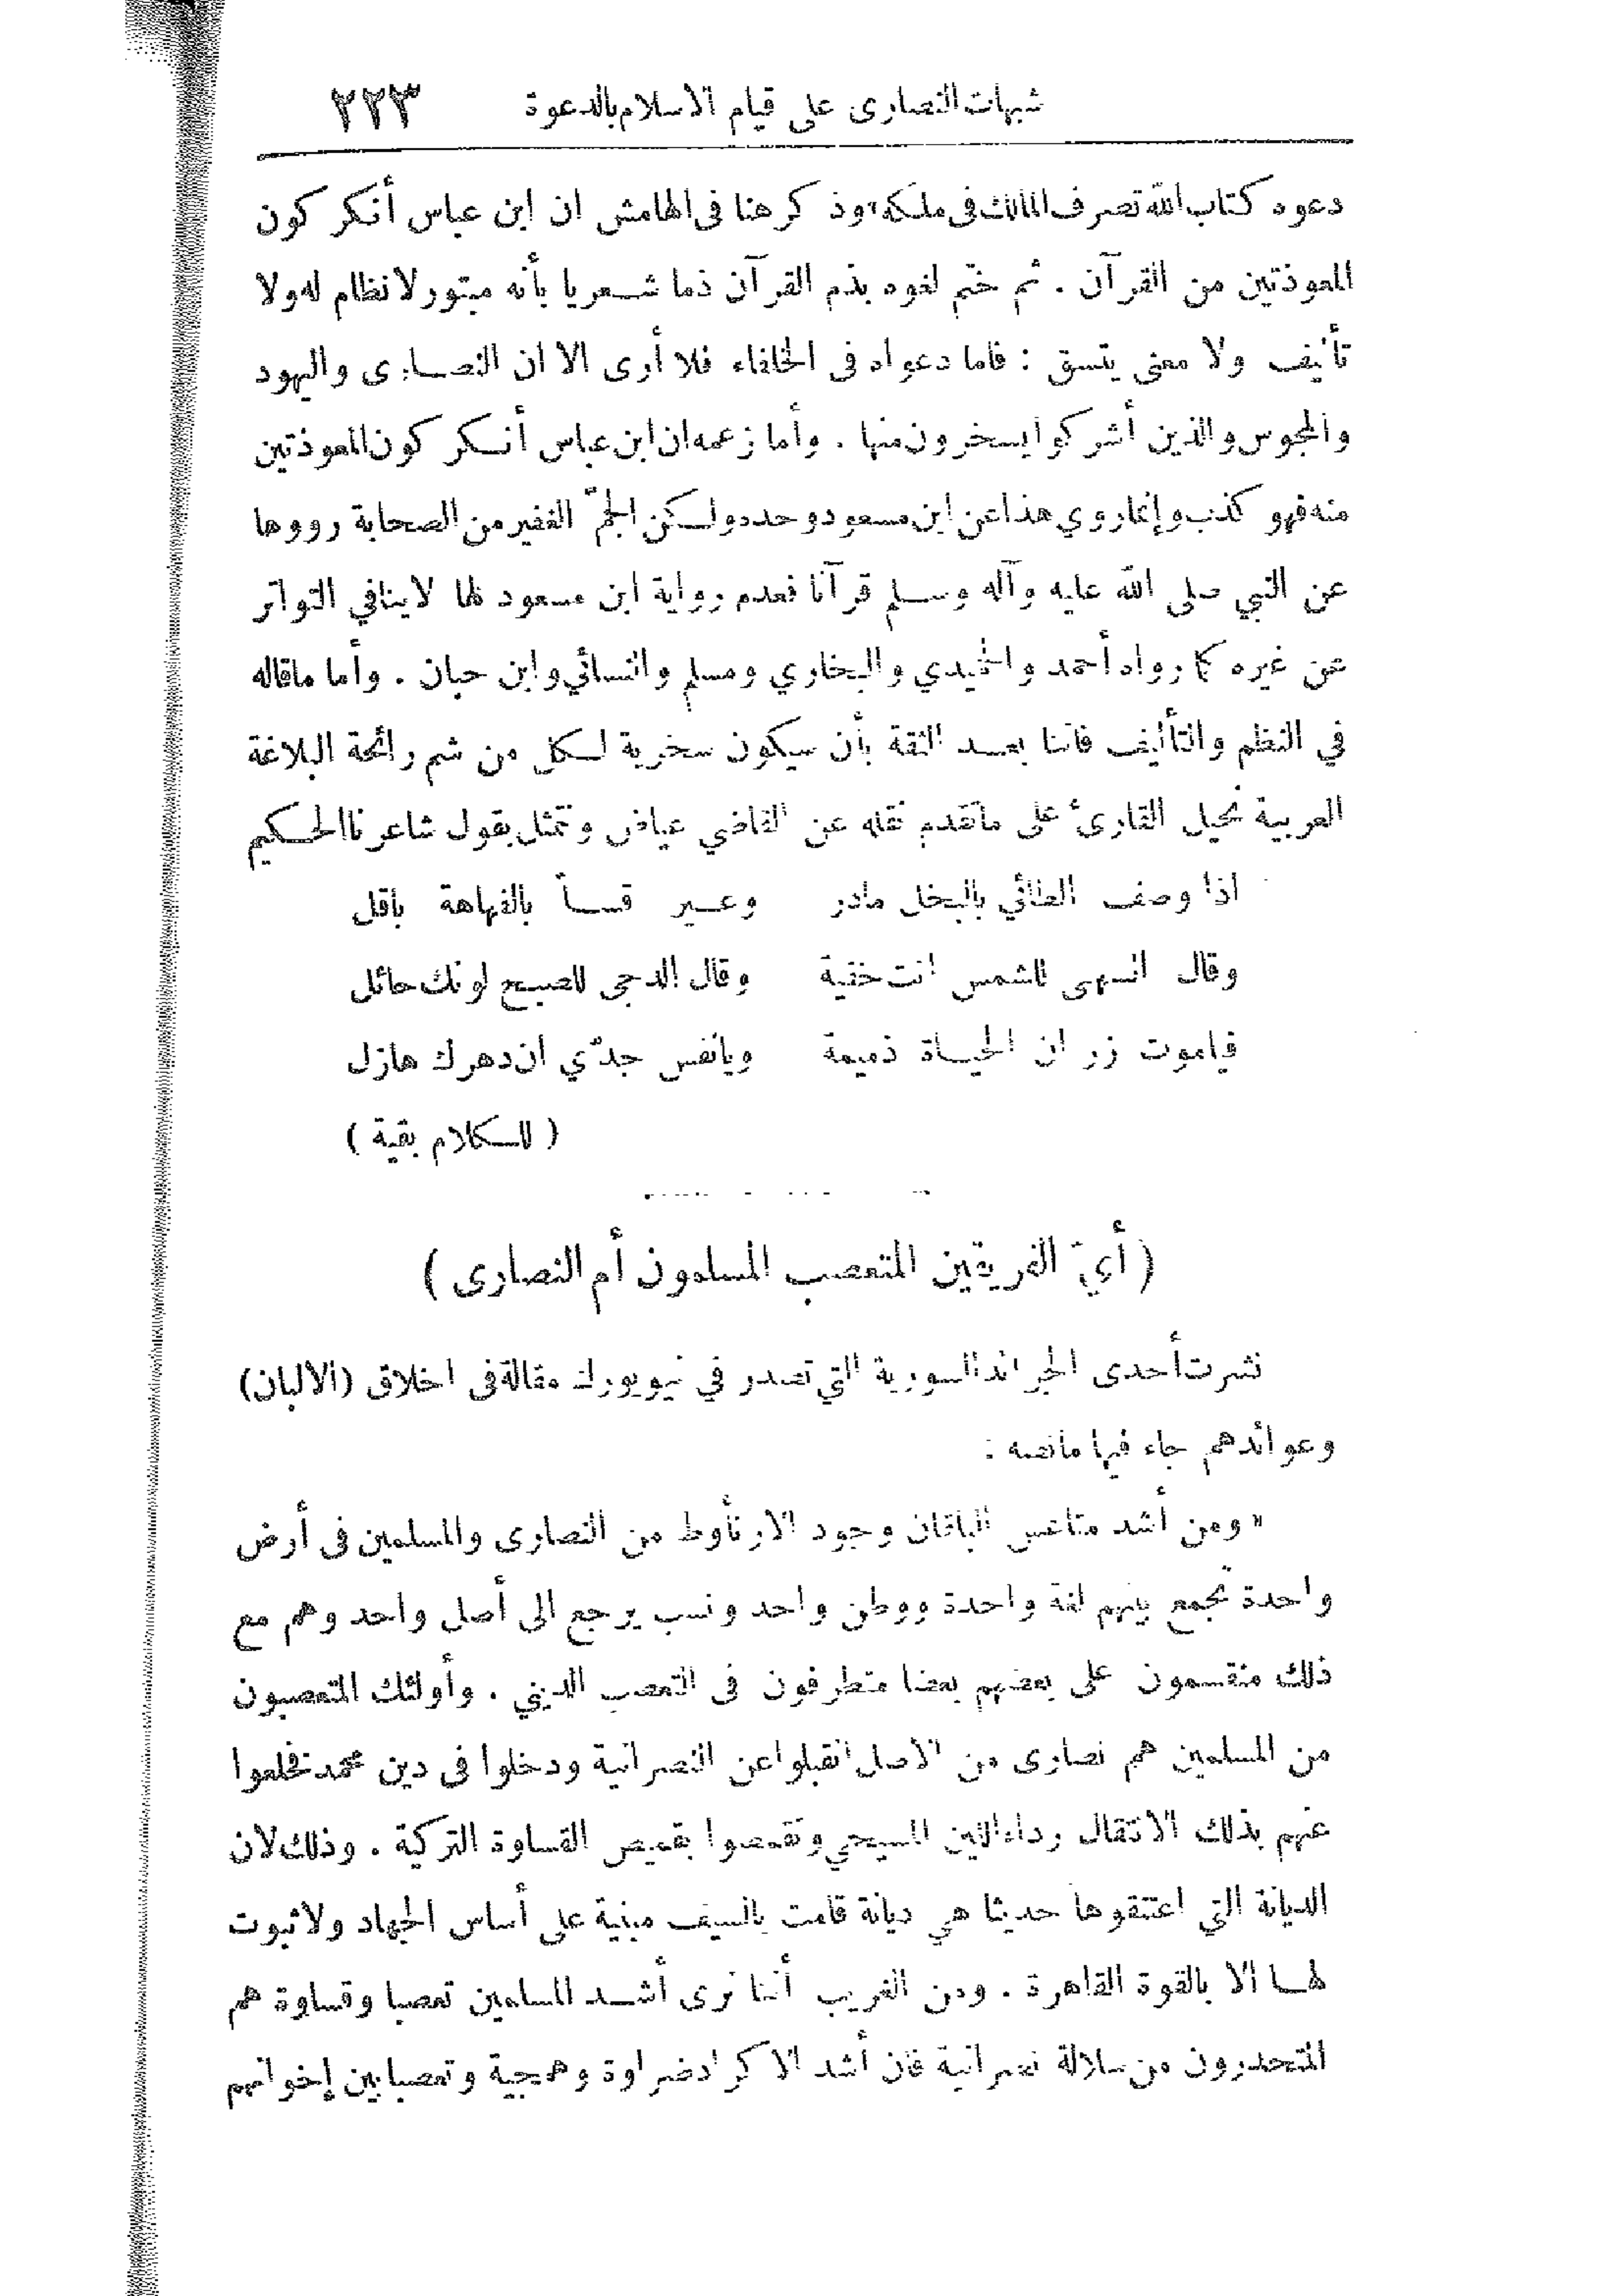 شبهات النصارى على قيام الاسلام بالدعوة ٢٢٣
دعوه كتاب الله تصرف المالك في ملكه، وذكر هنا في الهامش ان ابن عباس أنكر كون
المعوذتين من القرآن . ثم ختم لغوه بذم القرآن ذما شعريا بأنه مبتور لا نظام له ولا
تأليف ولا معنى يتسق : فاما دعواه في الخلفاء فلا أرى الا ان النصارى واليهود
والمجوس والذين أشركوا يسخرون منها . وأما زعمه ان ابن عباس أنكر كون المعوذتين
منه فهو كذب وإنما روي هذا عن ابن مسعود وحده ولكن الجمّ الغفير من الصحابة رووها
عن النبي صلى الله عليه وآله وسلم قرآنا فعدم رواية ابن مسعود لها لا ينافي التواتر
عن غيره كما رواه أحمد والحميدي والبخاري ومسلم والنسائي وابن حبان . وأما ما قاله
في النظم والتأليف فاننا بعد الثقة بأن سيكون سخرية لكل من شم رائحة البلاغة
العربية نحيل القارئ على ما تقدم نقله عن القاضي عياض ونتمثل بقول شاعرنا الحكيم
اذا وصف الطائي بالبخل مادر وعير قساً بالفهاهة باقل
وقال السهى للشمس انت خفية وقال الدجى للصبح لونك حائل
فياموت زر ان الحياة ذميمة ويانفس جدّي ان دهرك هازل
( للكلام بقية )
( أيّ الفريقين المتعصب المسلمون أم النصارى )
نشرت أحدى الجرائد السورية التي تصدر في نيويورك مقالة في اخلاق (الالبان)
وعوائدهم جاء فيها ما نصه :
« ومن أشد متاعس البلقان وجود الارنأوط من النصارى والمسلمين في أرض
واحدة تجمع بينهم لغة واحدة ووطن واحد ونسب يرجع الى أصل واحد وهم مع
ذلك منقسمون على بعضهم بعضا متطرفون في التعصب الديني . وأولئك المتعصبون
من المسلمين هم نصارى من الاصل انقبلوا عن النصرانية ودخلوا في دين محمد فخلعوا
عنهم بذلك الانتقال رداء الدين المسيحي وتقمصوا بقميص القساوة التركية . وذلك لان
الديانة التي اعتنقوها حديثا هي ديانة قامت بالسيف مبنية على أساس الجهاد ولا ثبوت
لها الا بالقوة القاهرة . ومن الغريب أننا نرى أشد المسلمين تعصبا وقساوة هم
المتحدرون من سلالة نصرانية فان أشد الاكراد ضراوة وهمجية وتعصبا بين إخوانهم